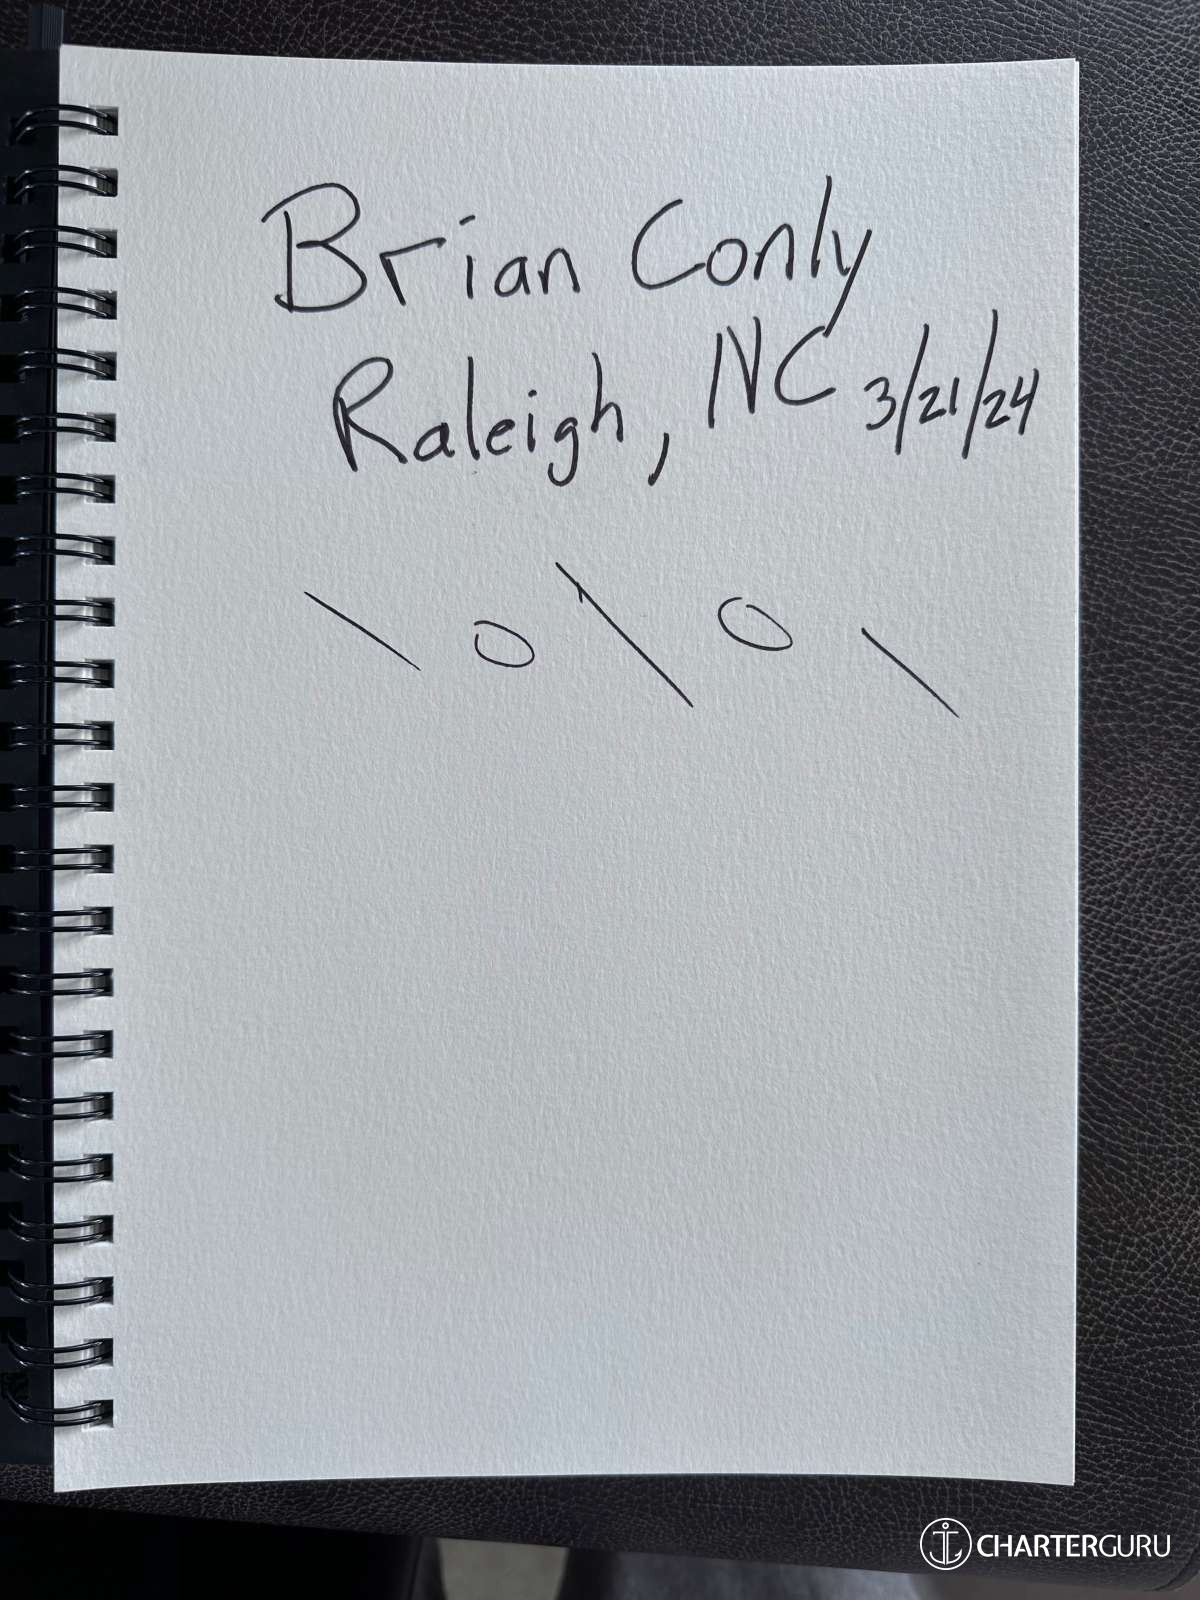 Brian Conly
Raleigh, NC 3/21/24
\ O \ O \
CHARTERGURU